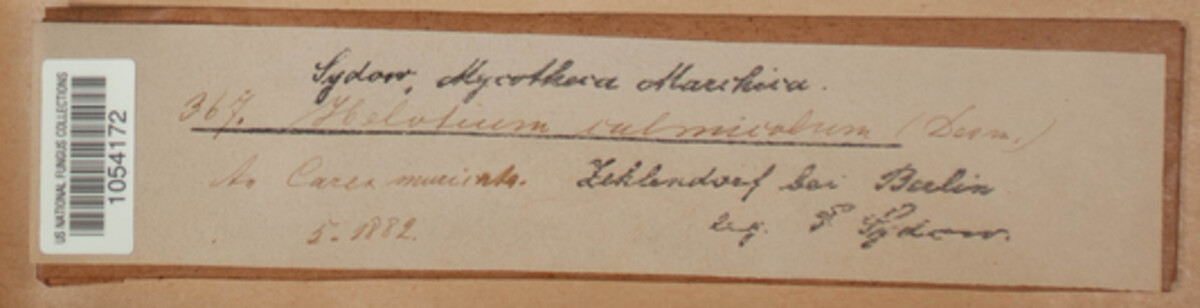 US NATIONAL FUNGUS COLLECTIONS
1054172
Sydow, Mycotheca Marchica.
367. Helotium culmicolum (Desm.)
An Carex muricata. Zehlendorf bei Berlin
5. 1882. leg. P Sydow.